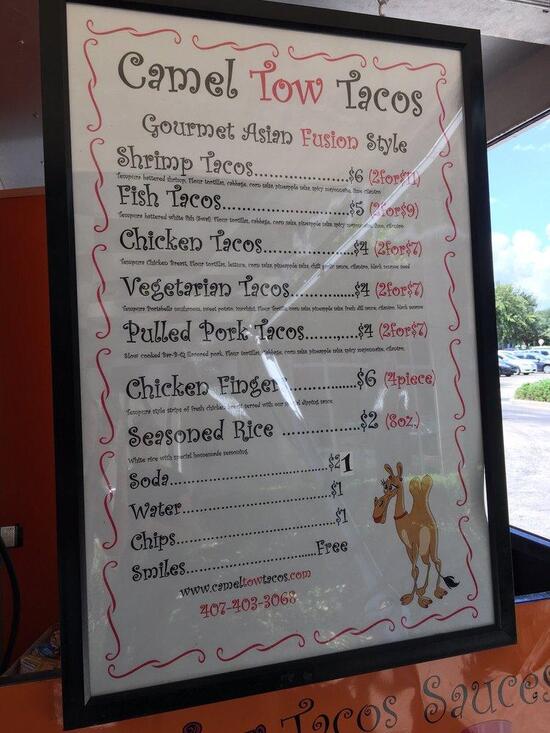 Camel Tow Tacos
Gourmet Asian Fusion Style
Shrimp Tacos....................$6 (2for$11)
Tempura battered shrimp, Flour tortillas, cabbage, corn salsa, pineapple salsa, spicy mayonnaise, lime, cilantro
Fish Tacos...........................$5 (2for$9)
Tempura battered white fish (Swai), Flour tortillas, cabbage, corn salsa, pineapple salsa, spicy mayonnaise, lime, cilantro
Chicken Tacos...................$4 (2for$7)
Tempura Chicken Breast, Flour tortillas, lettuce, corn salsa, pineapple salsa, chili garlic sauce, cilantro, black sesame seed
Vegetarian Tacos..............$4 (2for$7)
Tempura Portobello mushroom, sweet potato, zucchini, Flour tortillas, corn salsa, pineapple salsa, fresh dill sauce, cilantro, black sesame
Pulled Pork Tacos..........$4 (2for$7)
Slow cooked Bar-B-Q flavored pork, Flour tortillas, cabbage, corn salsa, pineapple salsa, spicy mayonnaise, cilantro
Chicken Fingers..............$6 (4piece)
Tempura style strips of fresh chicken breast served with our special dipping sauce
Seasoned Rice ................$2 (8oz.)
White rice with special homemade seasoning
Soda................................$21
Water..............................$1
Chips...............................$1
Smiles...........................Free
www.cameltowtacos.com
407-403-3068
Tacos Sauces